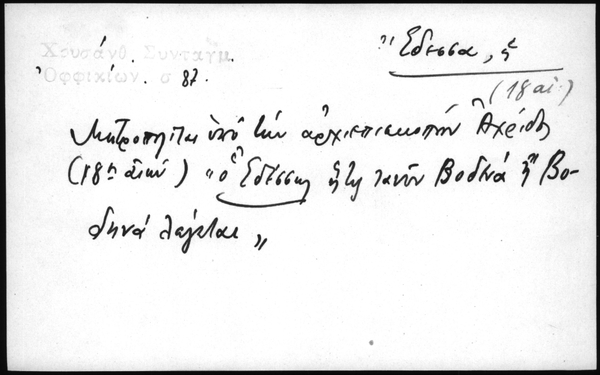 Χρυσάνθ. Συνταγμ.
Ὀφφικίων. σ 87.
Ἔδεσσα, ἡ
(18 αἰ.)
Μητροπολῖται ὑπὸ τὴν ἀρχιεπισκοπὴν Ἀχρίδος
(18ον αἰῶνα) "ὁ Ἐδέσσης ἥτις τανῦν Βοδενά ἢ Βο-
δηνά λέγεται"